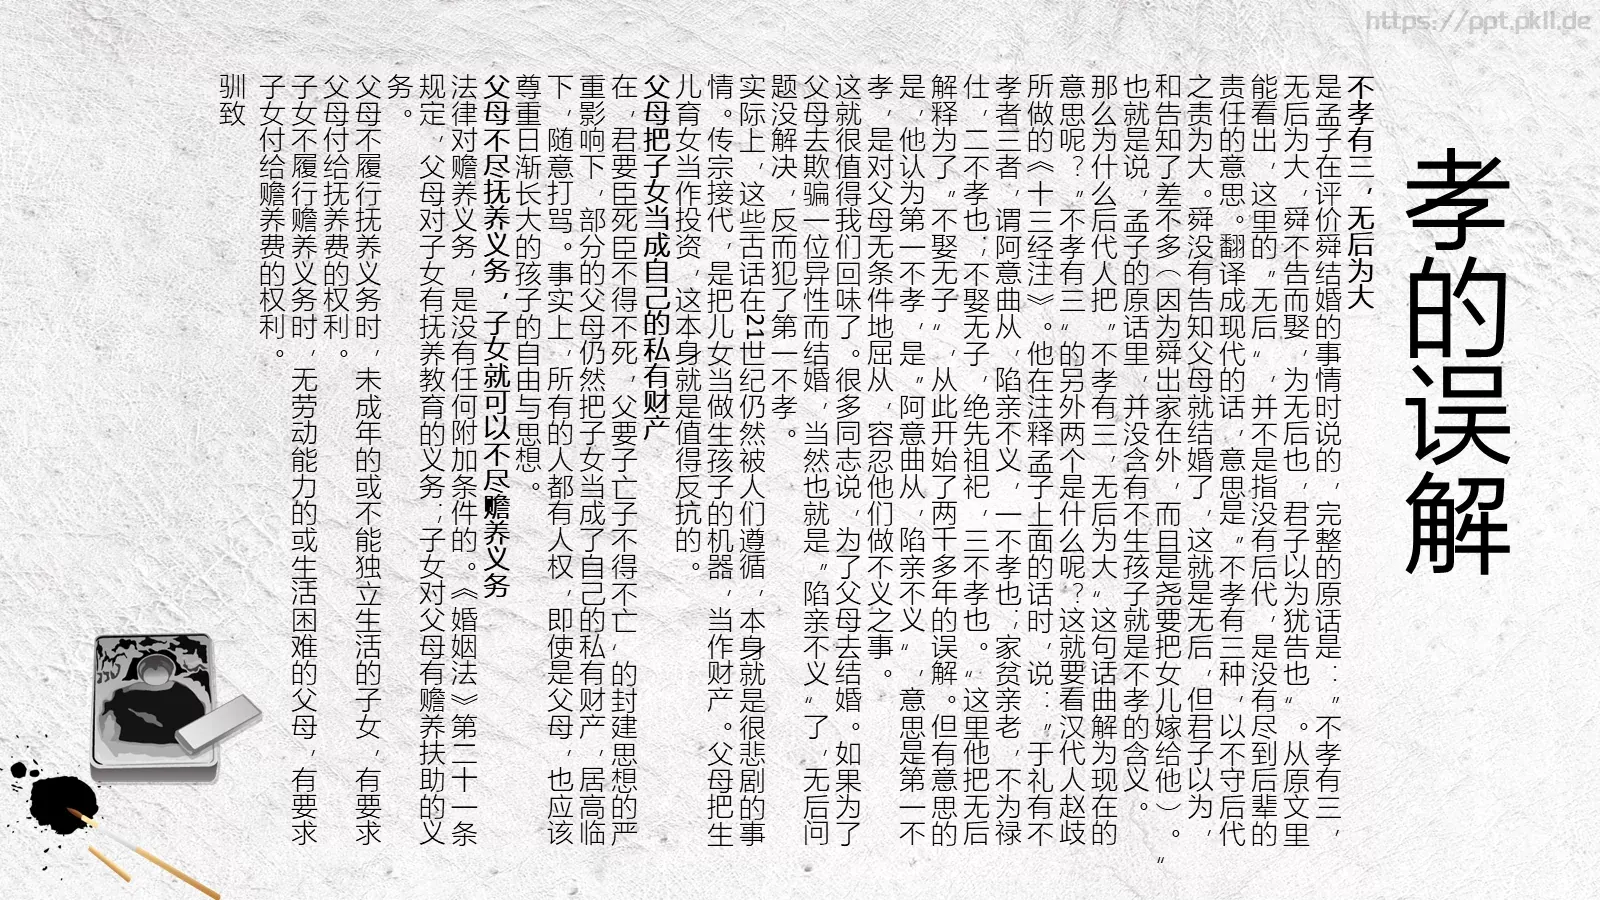 https://ppt.pk11.de
孝的误解
不孝有三，无后为大
是孟子在评价舜结婚的事情时说的，完整的原话是：“不孝有三，
无后为大，舜不告而娶，为无后也，君子以为犹告也”。从原文里
能看出，这里的“无后”，并不是指没有后代，是没有尽到后辈的
责任的意思。翻译成现代的话，意思是“不孝有三种，以不守后代
之责为大。舜没有告知父母就结婚了，这就是无后，但君子以为，
和告知了差不多（因为舜出家在外，而且是尧要把女儿嫁给他）。”
也就是说，孟子的原话里，并没含有不生孩子就是不孝的含义。
那么为什么后代人把“不孝有三，无后为大”这句话曲解为现在的
意思呢？“不孝有三”的另外两个是什么呢？这就要看汉代人赵歧
所做的《十三经注》。他在注释孟子上面的话时，说：“于礼有不
孝者三者，谓阿意曲从，陷亲不义，一不孝也；家贫亲老，不为禄
仕，二不孝也；不娶无子，绝先祖祀，三不孝也。”这里他把无后
解释为了“不娶无子”，从此开始了两千多年的误解。但有意思的
是，他认为第一不孝，是“阿意曲从，陷亲不义”，意思是第一不
孝，是对父母无条件地屈从，容忍他们做不义之事。
这就很值得我们回味了。很多同志说，为了父母去结婚。如果为了
父母去欺骗一位异性而结婚，当然也就是“陷亲不义”了，无后问
题没解决，反而犯了第一不孝。
实际上，这些古话在21世纪仍然被人们遵循，本身就是很悲剧的事
情。传宗接代，是把儿女当做生孩子的机器，当作财产。父母把生
儿育女当作投资，这本身就是值得反抗的。
父母把子女当成自己的私有财产
在，君要臣死臣不得不死，父要子亡子不得不亡”的封建思想的严
重影响下，部分的父母仍然把子女当成了自己的私有财产，居高临
下，随意打骂。事实上，所有的人都有人权，即使是父母，也应该
尊重日渐长大的孩子的自由与思想。
父母不尽抚养义务，子女就可以不尽赡养义务
法律对赡养义务，是没有任何附加条件的。《婚姻法》第二十一条
规定，父母对子女有抚养教育的义务；子女对父母有赡养扶助的义
务。
父母不履行抚养义务时，未成年的或不能独立生活的子女，有要求
父母付给抚养费的权利。
子女不履行赡养义务时，无劳动能力的或生活困难的父母，有要求
子女付给赡养费的权利。
驯致